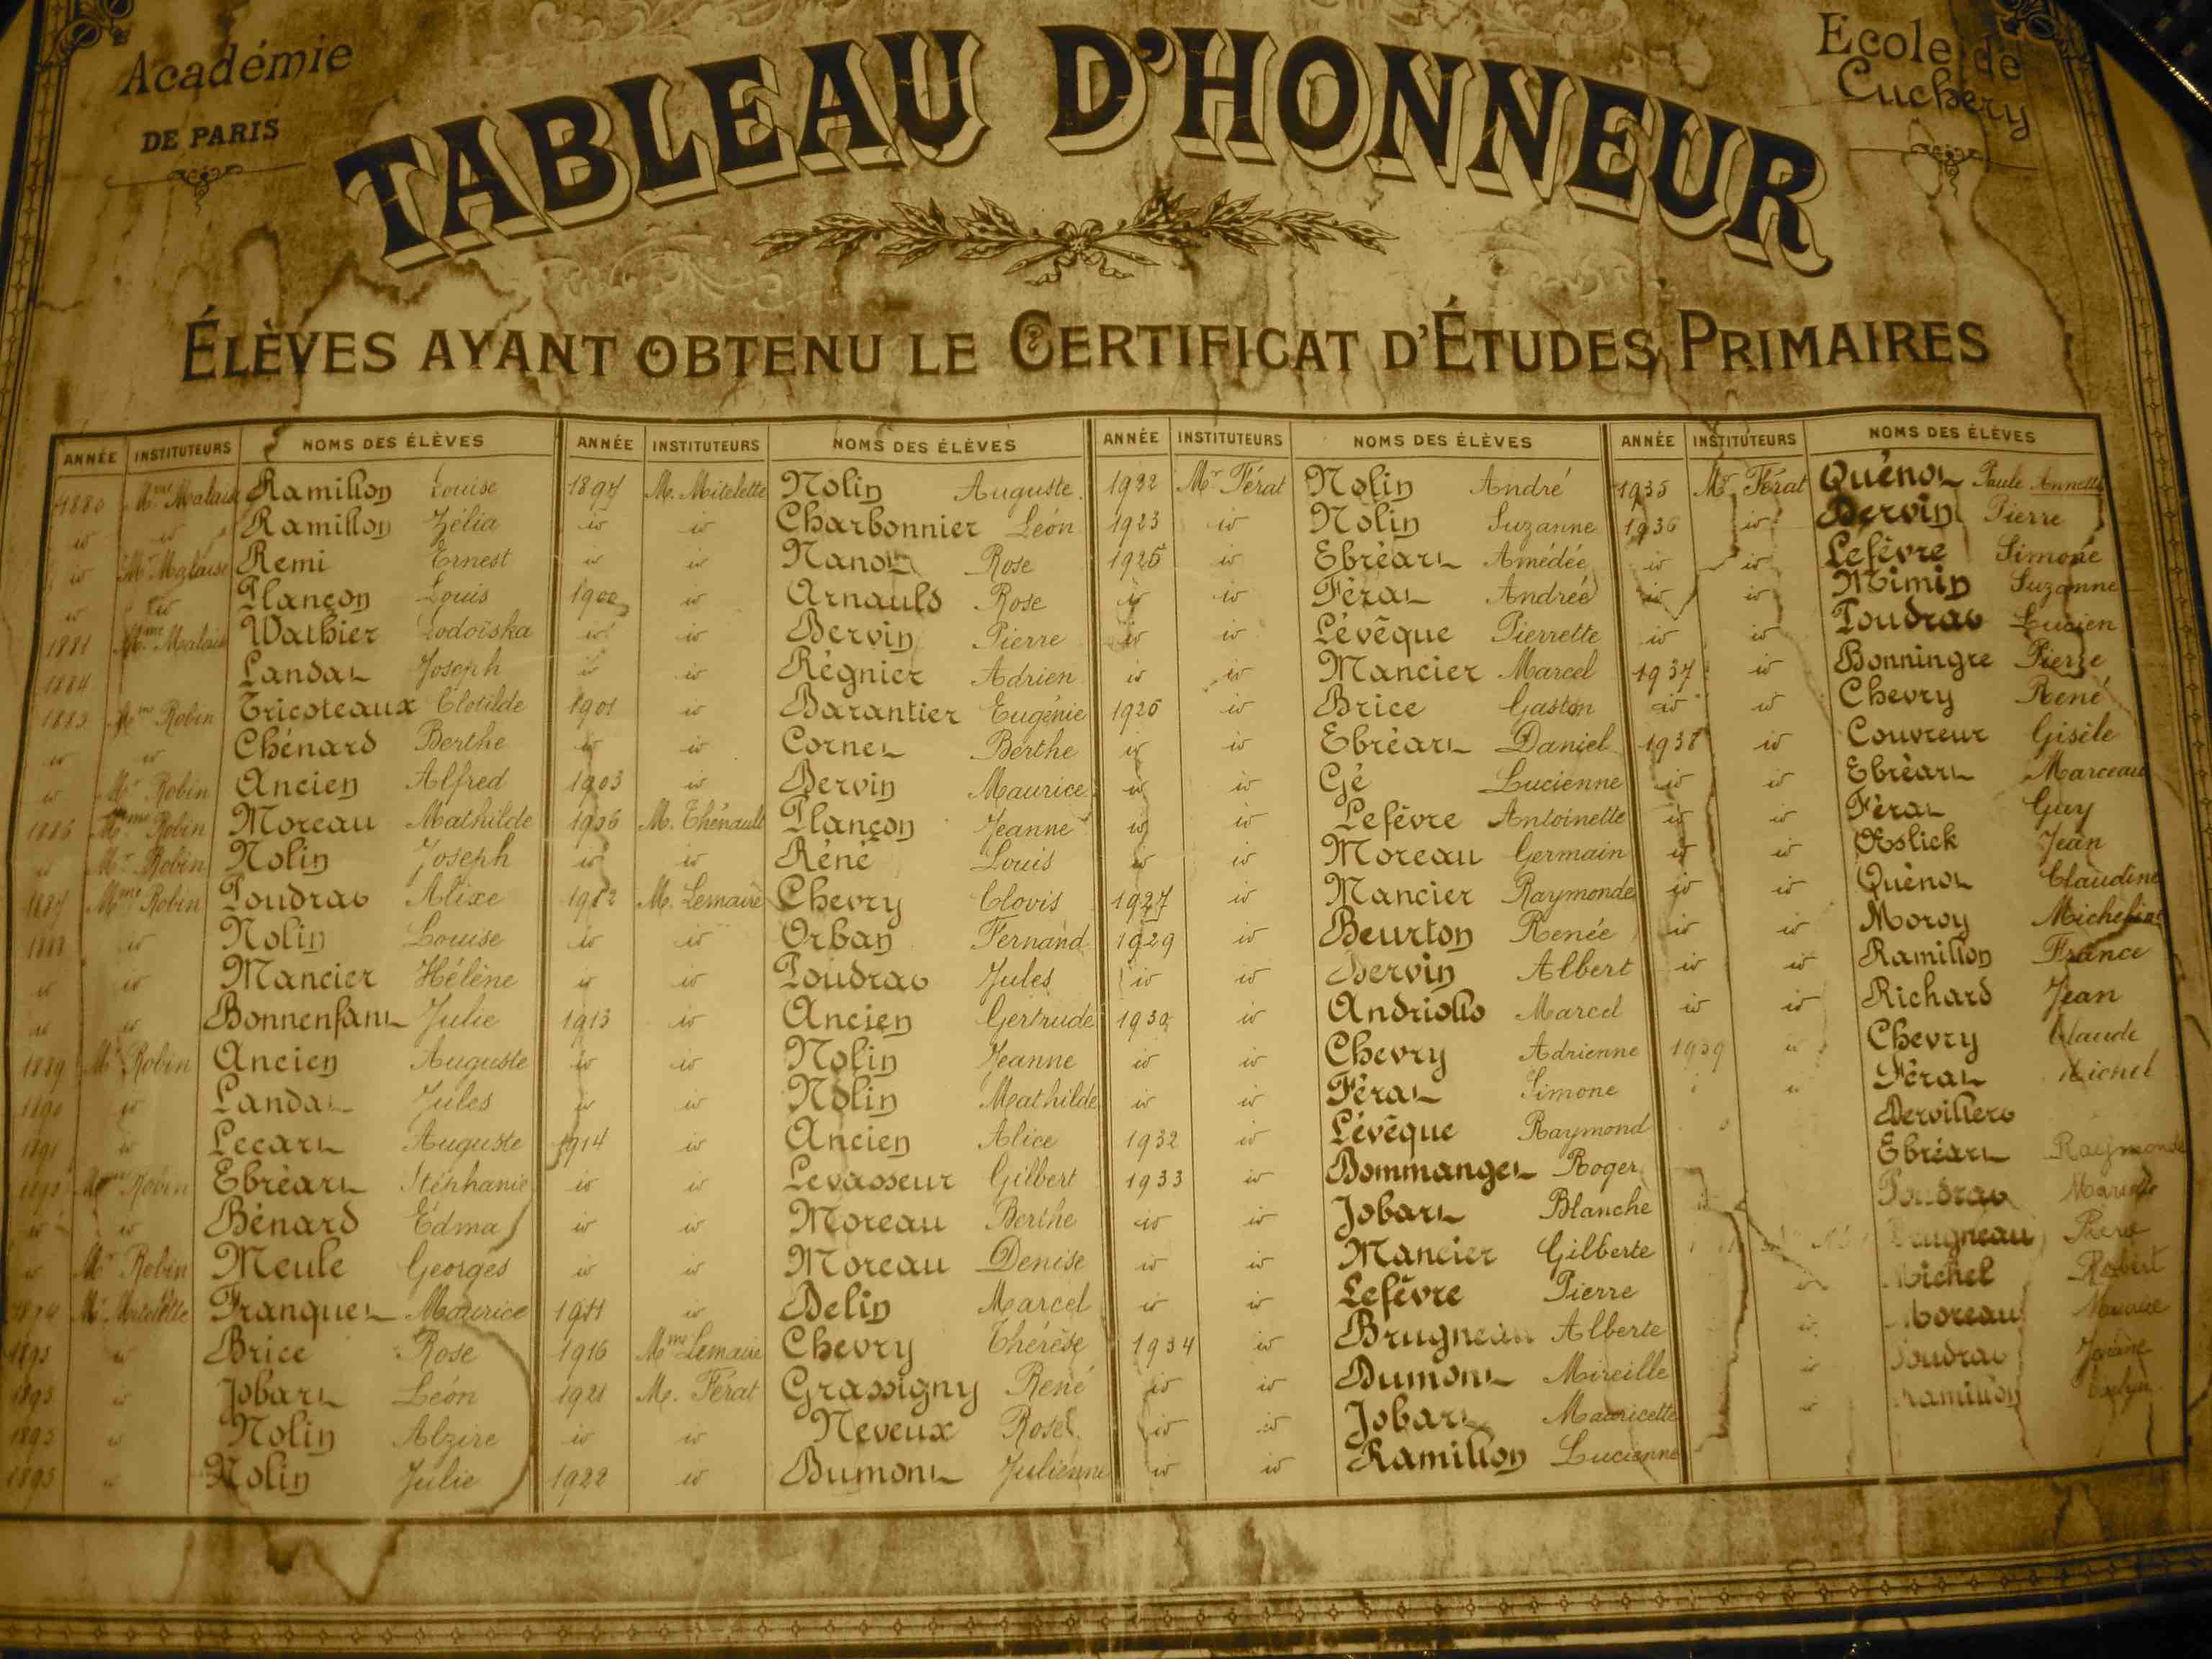 Académie
DE PARIS
Ecole de
Cuchery
TABLEAU D'HONNEUR
ÉLÈVES AYANT OBTENU LE CERTIFICAT D'ÉTUDES PRIMAIRES
ANNÉE INSTITUTEURS NOMS DES ÉLÈVES
1880 Mme Malaise Ramillon Louise
id id Ramillon Zélia
id Mr Malaise Remi Ernest
id id Plançon Louis
1881 Mme Malaise Wathier Lodoïska
1884 Landat Joseph
1885 Mme Robin Tricoteaux Clotilde
id id Chénard Berthe
id Mr Robin Ancien Alfred
1886 Mme Robin Moreau Mathilde
id Mr Robin Nolin Joseph
1887 Mme Robin Poudras Alixe
1888 id Nolin Louise
id id Mancier Hélène
id id Bonnenfant Julie
1889 Mr Robin Ancien Auguste
1890 id Landat Jules
1891 id Lecart Auguste
Mme Robin Ebréart Stéphanie
id id Bénard Edma
id Mr Robin Meule Georges
1894 Mr Mitelette Franquet Maurice
1895 id Brice Rose
1895 id Jobart Léon
1895 id Nolin Alzire
1895 id Nolin Julie
ANNÉE INSTITUTEURS NOMS DES ÉLÈVES
1897 M. Mitelette Nolin Auguste
id id Charbonnier Léon
id id Nanot Rose
1900 id Arnould Rose
id id Dervin Pierre
id id Régnier Adrien
1901 id Barantier Eugénie
id id Cornet Berthe
1903 id Dervin Maurice
1906 M. Thénault Plançon Jeanne
id id Réné Louis
1912 M. Lemaire Chevry Clovis
id id Orban Fernand
id id Poudras Jules
1913 id Ancien Gertrude
id id Nolin Jeanne
id id Nolin Mathilde
1914 id Ancien Alice
id id Levasseur Gilbert
id id Moreau Berthe
id id Moreau Denise
id Delin Marcel
1916 Mme Lemaire Chevry Thérèse
1921 M. Férat Grassigny René
id id Neveux Rose
1922 id Dumont Julienne
ANNÉE INSTITUTEURS NOMS DES ÉLÈVES
1922 Mr Férat Nolin André
1923 id Nolin Suzanne
1925 id Ebréart Amédée
id id Férat Andrée
id id Lévêque Pierrette
id id Mancier Marcel
1926 id Brice Gaston
id id Ebréart Daniel
id id Gé Lucienne
id id Lefèvre Antoinette
id id Moreau Germain
1927 id Mancier Raymonde
1929 id Beurton Renée
id id Dervin Albert
1930 id Andriollo Marcel
id id Chevry Adrienne
id id Férat Simone
1932 id Lévêque Raymond
1933 id Dommanget Roger
id id Jobart Blanche
id id Mancier Gilberte
id id Lefèvre Pierre
1934 id Brugneau Alberte
id id Dumont Mireille
id id Jobart Mauricette
id id Ramillon Lucienne
ANNÉE INSTITUTEURS NOMS DES ÉLÈVES
1935 Mr Férat Quénot Paule Annette
1936 id Dervin Pierre
id id Lefèvre Simone
id id Mimin Suzanne
id id Poudras Lucien
1937 id Bonningre Pierre
id id Chevry René
1938 id Couvreur Gisèle
id id Ebréart Marceau
id id Férat Guy
id id Oeslick Jean
id id Quénot Claudine
id id Moroy Micheline
id id Ramillon France
id id Richard Jean
1939 id Chevry Claude
id Férat Michel
Dervillers
Ebréart Raymonde
Poudras
Brugneau Pierre
id Michel Robert
id Moreau Maurice
id Poudras
id Ramillon